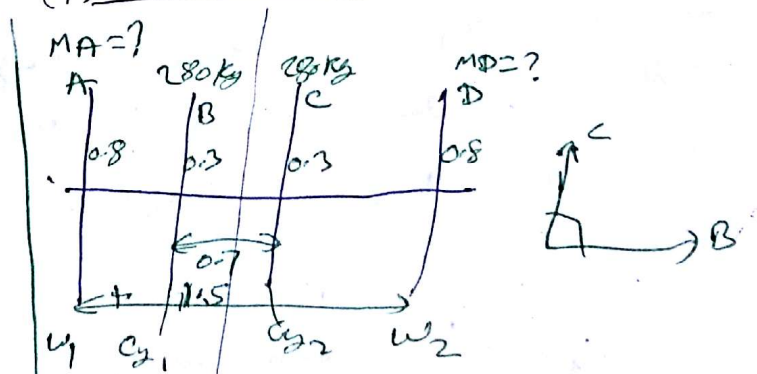 MA=?
280kg
280kg
MD=?
A
B
C
D
0.8
0.3
0.3
0.8
C
0.7
B
1.5
W1
Cy1
Cy2
W2